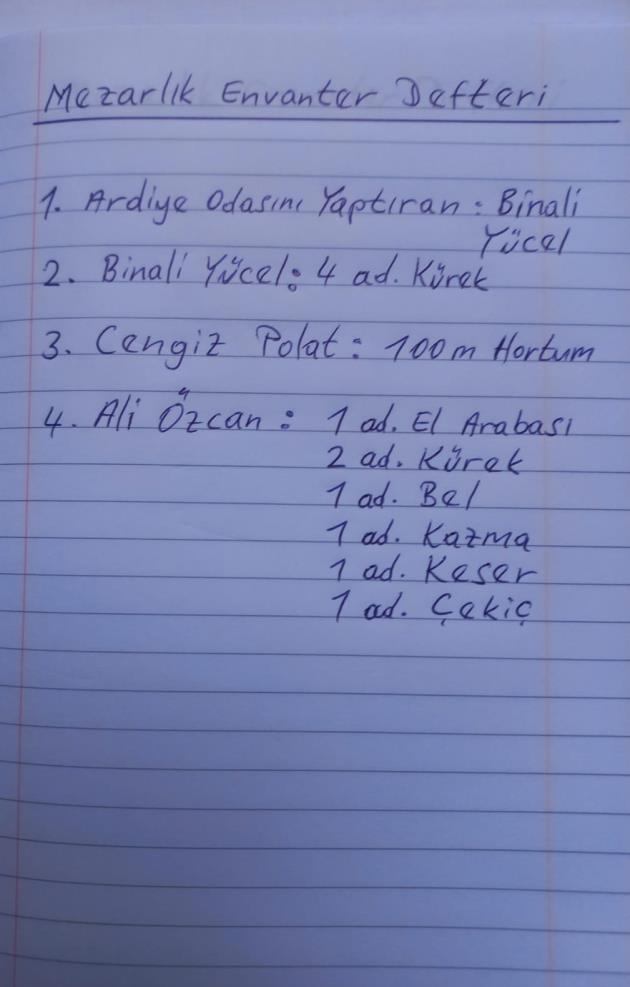 Mezarlık Envanter Defteri
1. Ardiye Odasını Yaptıran : Binali
Yücel
2. Binali Yücel: 4 ad. Kürek
3. Cengiz Polat : 100 m Hortum
4. Ali Özcan : 1 ad. El Arabası
2 ad. Kürek
1 ad. Bel
1 ad. Kazma
1 ad. Keser
1 ad. Çekiç